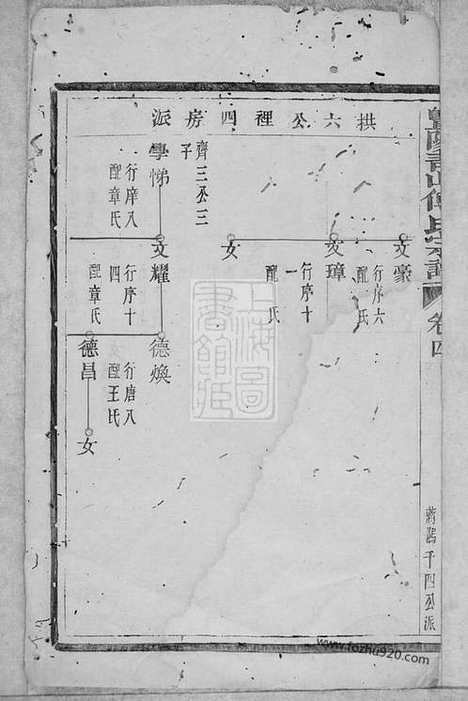 拱六公裡四房派
文豪
行序六
配 氏
文璋
行序十
一
配 氏
女
齊三公三
子
學悌
行庠八
配章氏
文耀
行序十
四
配章氏
德煥
行唐八
配王氏
德昌
女
傅氏宗譜
卷四
千四公派
上海圖書館藏
www.fozhu920.com